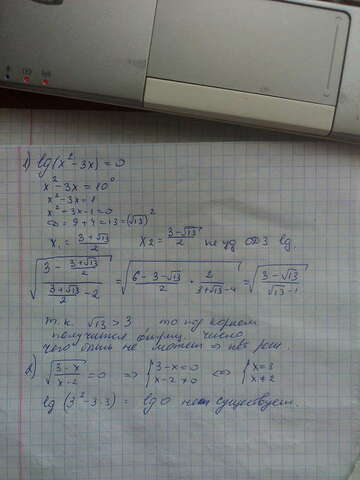 1) lg(x² - 3x) = 0
x² - 3x = 10⁰
x² - 3x = 1
x² - 3x - 1 = 0
D = 9 + 4 = 13 = (√13)²
x₁ = (3+√13)/2 x2 = (3-√13)/2 не уд ОДЗ lg.
√((3 - (3+√13)/2)/((3+√13)/2 - 2)) = √((6-3-√13)/2 · 2/(3+√13-4)) = √((3-√13)/(√13-1))
т.к. √13 > 3 то под корнем
получится отриц. число
чего быть не может ⇒ нет реш.
2) √((3-x)/(x-2)) = 0 ⇒ {3-x=0 x-2≠0 ⇔ {x=3 x≠2
lg (3²-3·3) = lg 0 не существует.